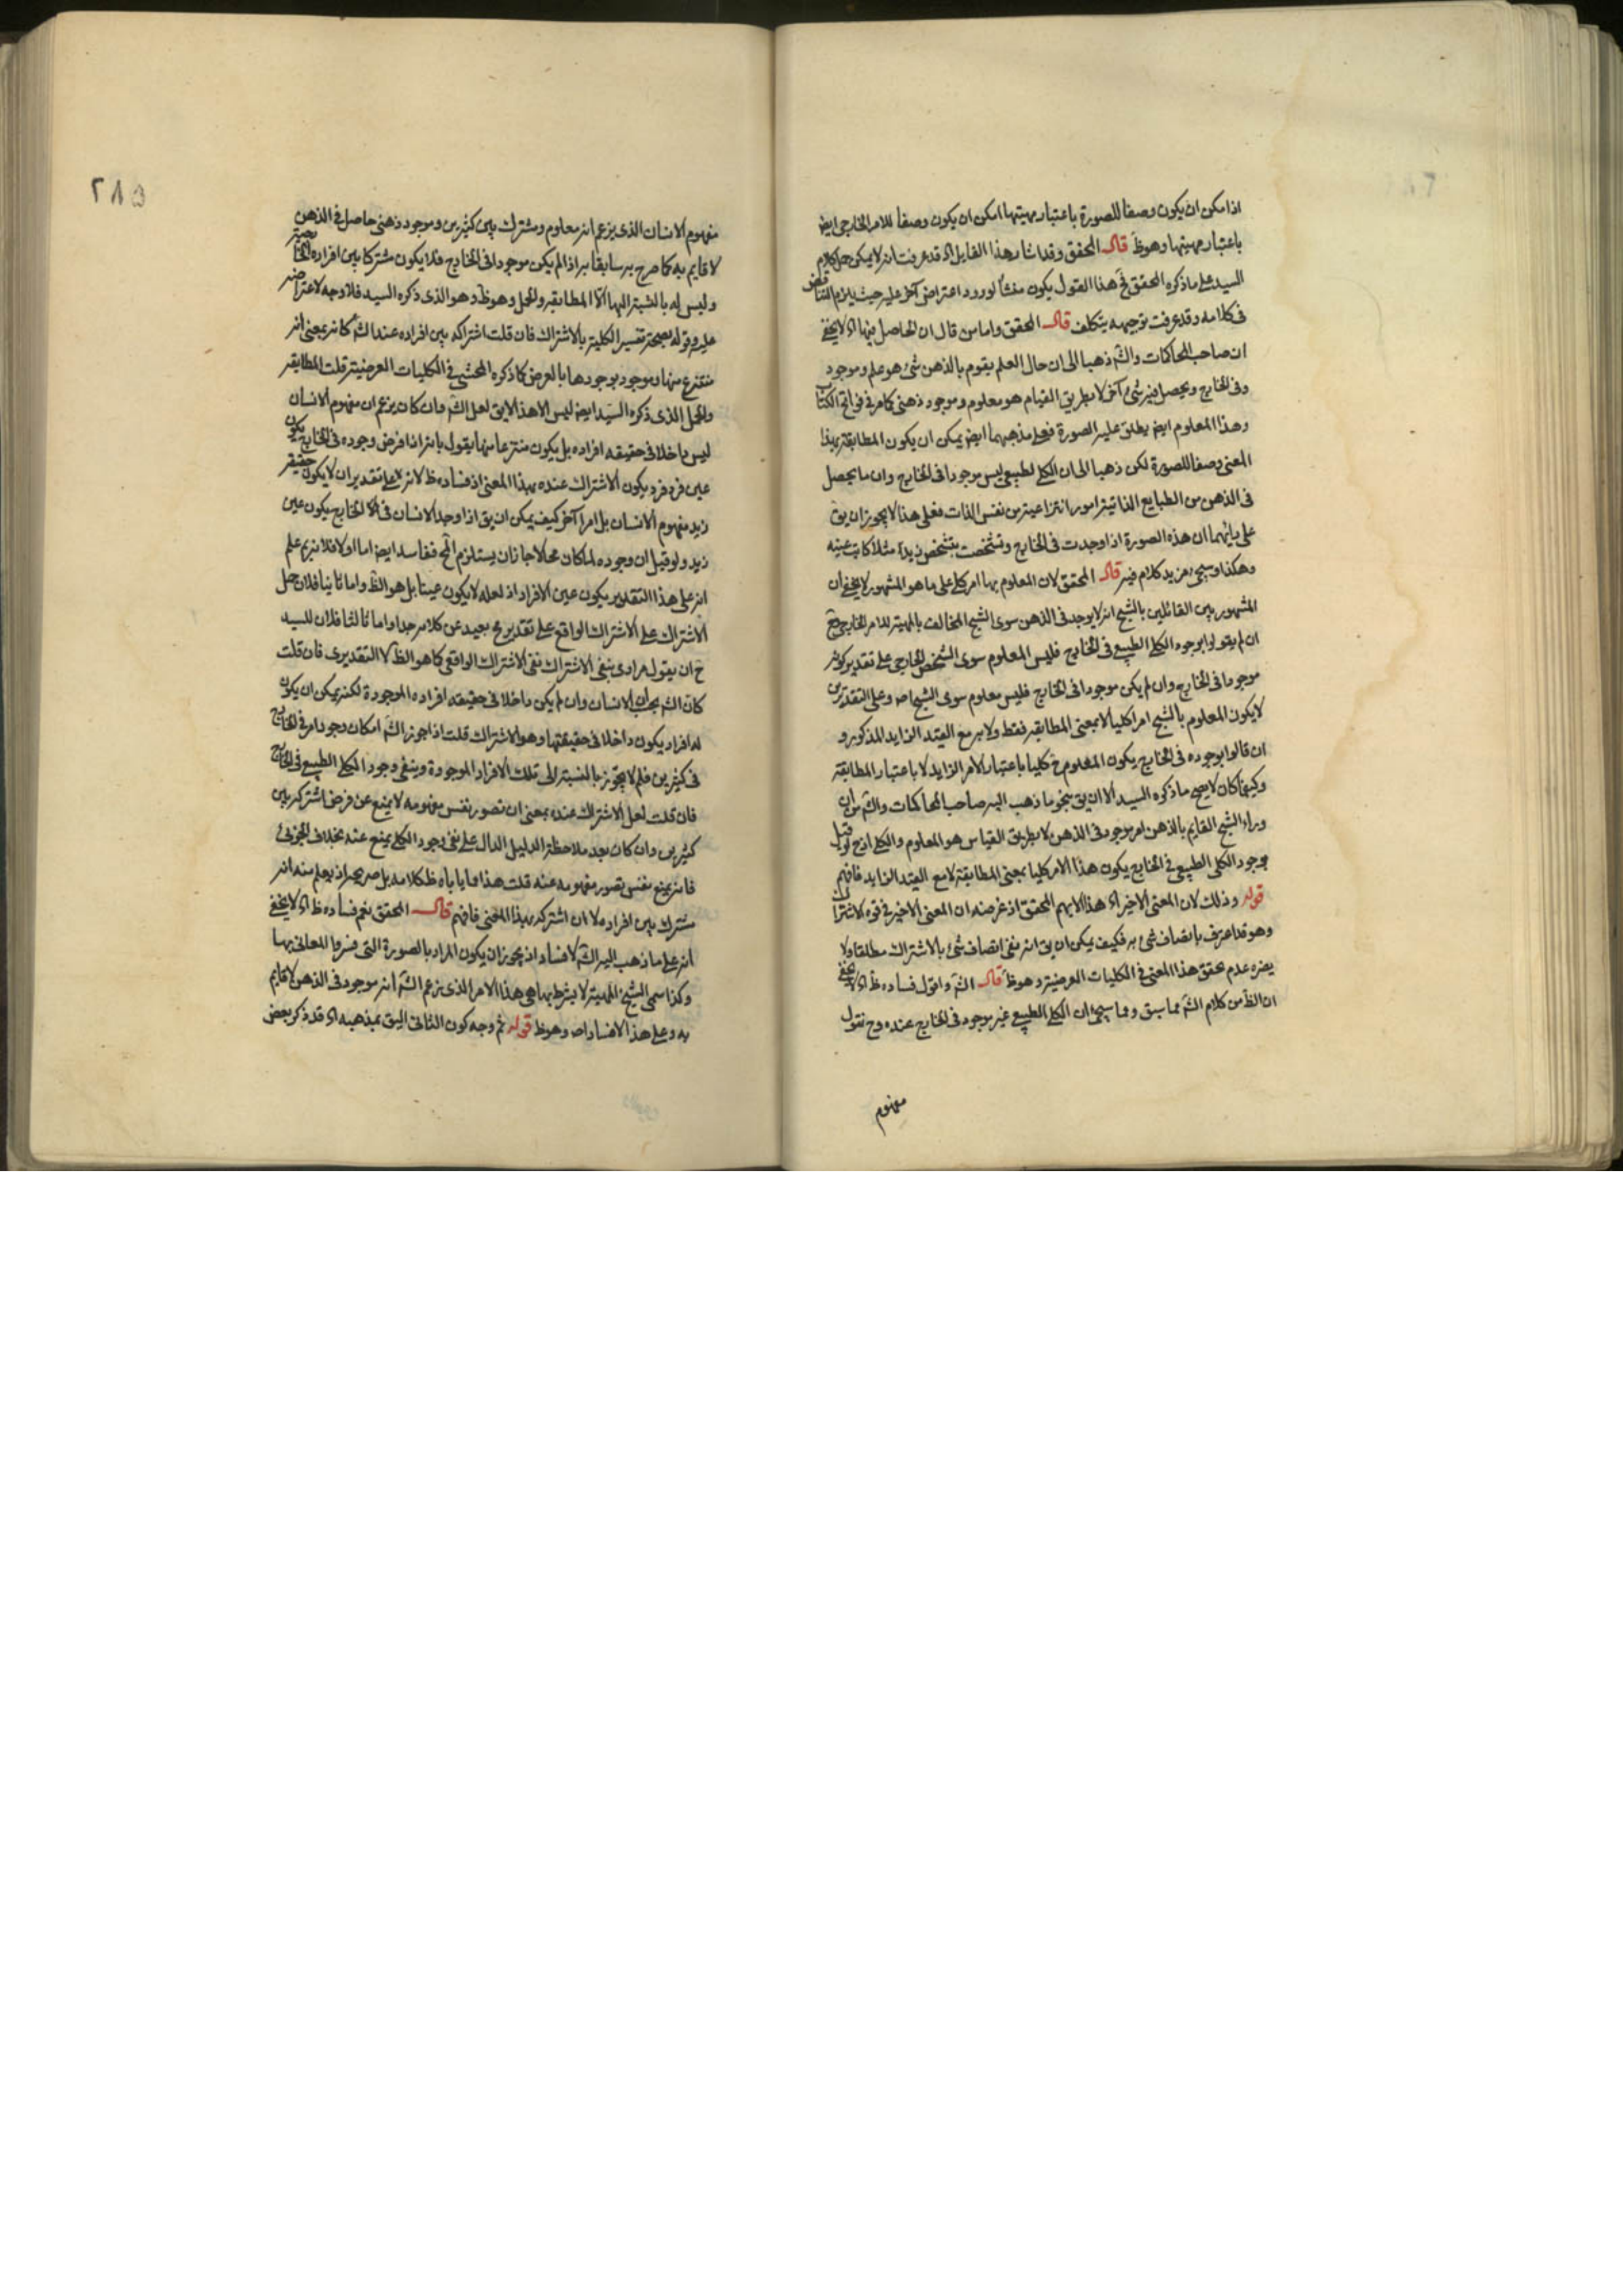 اذا مكن ان يكون وصفا للصورة باعتبار مهيتها امكن ان يكون وصفا للامر الخارجى ايض
باعتبار مهيتها وهو ظ قال المحقق وقد اشار هذا القايل اه قد عرفت انه لا يمكن حمل كلام
السيد على ما ذكره المحقق فى هذا القول يكون منشأ لورود اعتراض آخر عليه حيث يلزم التناقض
فى كلامه وقد عرفت توجيهه بتكلف قال المحقق واما من قال ان الحاصل فيها اه لا يخفى
ان صاحب المحاكمات والش ذهبا الى ان حال العلم يقوم بالذهن شئ هو علم وموجود
وفى الخارج ويحصل فيه شئ آخر لا بطريق القيام هو معلوم وموجود ذهنى كما مر فى فواتح الكتاب
وهذا المعلوم ايض يطلق عليه الصورة فعلى مذهبهما ايض يمكن ان يكون المطابقة بهذا
المعنى وصفا للصورة لكن ذهبا الى ان الكلى الطبيعى ليس موجودا فى الخارج وان ما يحصل
فى الذهن من الطبايع الذاتية امور انتزاعية من نفس الذات فعلى هذا لا يجوز ان يق
على رأيهما ان هذه الصورة اذا وجدت فى الخارج وتشخصت بتشخص زيد مثلا كانت عينه
وهكذا وسيجئ مزيد كلام فيه قال المحقق لان المعلوم بها امر كلى على ما هو المشهور لا يخفى ان
المشهور بين القائلين بالشبح انه لا يوجد فى الذهن سوى الشبح المخالف بالمهية للامر الخارجى فح
ان لم يقولوا بوجود الكلى الطبيعى فى الخارج فليس المعلوم سوى الشخص الخارجى على تقدير كونه
موجودا فى الخارج وان لم يكن موجودا فى الخارج فليس معلوم سوى الشبح اصلا وعلى التقديرين
لا يكون المعلوم بالشبح امرا كليا لا بمعنى المطابقه فقط ولا به مع القيد الزايد المذكور و
ان قالوا بوجوده فى الخارج يكون المعلوم ح كليا باعتبار الامر الزايد لا باعتبار المطابقة
وكيفما كان لا يصح ما ذكره السيد الا ان يق بنحو ما ذهب اليه صاحب المحاكمات والش من ان
وراء الشبح القايم بالذهن امر موجود فى الذهن لا بطريق القيام هو المعلوم والكلى اذ ح لو قيل
بوجود الكلى الطبيعى فى الخارج يكون هذا الامر كليا بمعنى المطابقة لا مع القيد الزايد فافهم
قوله وذلك لان المعنى الاخير اه هذا لا يهم المحقق اذ غرضه ان المعنى الاخير فى قوه الاشتراك
وهو قد اعترف باتصاف شئ به فكيف يمكن ان يق انه نفى اتصاف شئ بالاشتراك مطلقا ولا
يضره عدم تحقق هذا المعنى فى الكليات العرضية وهو ظ قال الش واقول فساده ظ اه لا يخفى
ان الظ من كلام الش مما سبق ومما سيجئ ان الكلى الطبيعى غير موجود فى الخارج عنده وح نقول
مفهوم
٢٨٥
مفهوم الانسان الذى يزعم انه معلوم ومشترك بين كثيرين وموجود ذهنى حاصل فى الذهن
لا قايم به كما صرح به سابقا اذا لم يكن موجودا فى الخارج فلا يكون مشتركا بين افراده
وليس له بالنسبة اليها الا المطابقة والحمل وهو ظ وهو الذى ذكره السيد فلا وجه لاعتراضه
عليه وقوله بصحة تفسير الكلية بالاشتراك فان قلت اشتراكه بين افراده عند الش كانه بمعنى انه
منتزع منها وموجود بوجودها بالعرض كما ذكره المحشى فى الكليات العرضية قلت المطابقه
والحمل الذى ذكره السيد ايض ليس الا هذا لا يق لعل الش وان كان يزعم ان مفهوم الانسان
ليس داخلا فى حقيقه افراده بل يكون منتزعا منها يقول بانه اذا فرض وجوده فى الخارج يكون
عين فرد فرد يكون الاشتراك عنده بهذا المعنى اذ فساده ظ لانه على تقدير ان لا يكون حقيقه
زيد مفهوم الانسان بل امرا آخر كيف يمكن ان يق اذا وجد الانسان فى الخارج يكون عين
زيد ولو قيل ان وجوده لما كان محالا جاز ان يستلزم المح ففاسد ايض اما اولا فلانه يعلم
انه على هذا التقدير يكون عين الافراد اذ لعله لا يكون عينا بل هو الظ واما ثانيا فلان حمل
الاشتراك على الاشتراك الواقع على تقدير مح بعيد عن كلامه جدا واما ثالثا فلان للسيد
ح ان يقول مرادى بنفى الاشتراك نفى الاشتراك الواقعى كما هو الظ لا التقديرى فان قلت
كان الش الانسان وان لم يكن داخلا فى حقيقه افراده الموجودة لكنه يمكن ان يكون
له افراد يكون داخلا فى حقيقتها وهو الاشتراك قلت اذا جوز الش امكان وجود امر فى الخارج
فى كثيرين فلم لا يجوز بالنسبة الى تلك الافراد الموجودة وينفى وجود الكلى الطبيعى فى الخارج
فان قلت لعل الاشتراك عنده بمعنى ان تصور نفس مفهومه لا يمنع عن فرض اشتراكه بين
كثيرين وان كان بعد ملاحظة الدليل الدال على نفى وجود الكلى يمنع عنه بخلاف الجزئى
فانه يمنع نفس تصور مفهومه عنه قلت هذا مما ياباه ظ كلامه بل صريحه اذ يعلم منه انه
مشترك بين افراده لا ان اشتراكه بهذا المعنى فافهم قال المحقق نعم فساده ظ اه لا يخفى
انه على ما ذهب اليه الش لا فساد اذ يجوز ان يكون المراد بالصورة التى فسروا المعانى بها
وكذا سمى الشيخ المهية لا بشرط بها هى هذا الامر الذى يزعم الش انه موجود فى الذهن لا قايم
به وعلى هذا لا فساد اصلا وهو ظ قوله ثم وجه كون الثانى اليق بمذهبه اه قد ذكر بعض